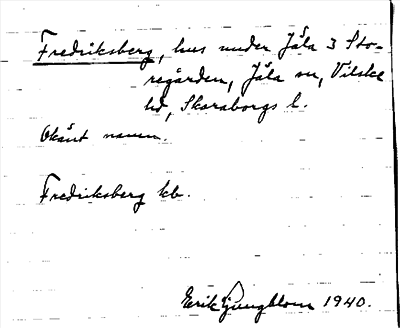 Fredriksberg, hus under Jäla 3 Sto-
regården, Jäla sn, Vilske
hd, Skaraborgs l.
Okänt namn.
Fredriksberg kb.
Erik Ljungblom 1940.